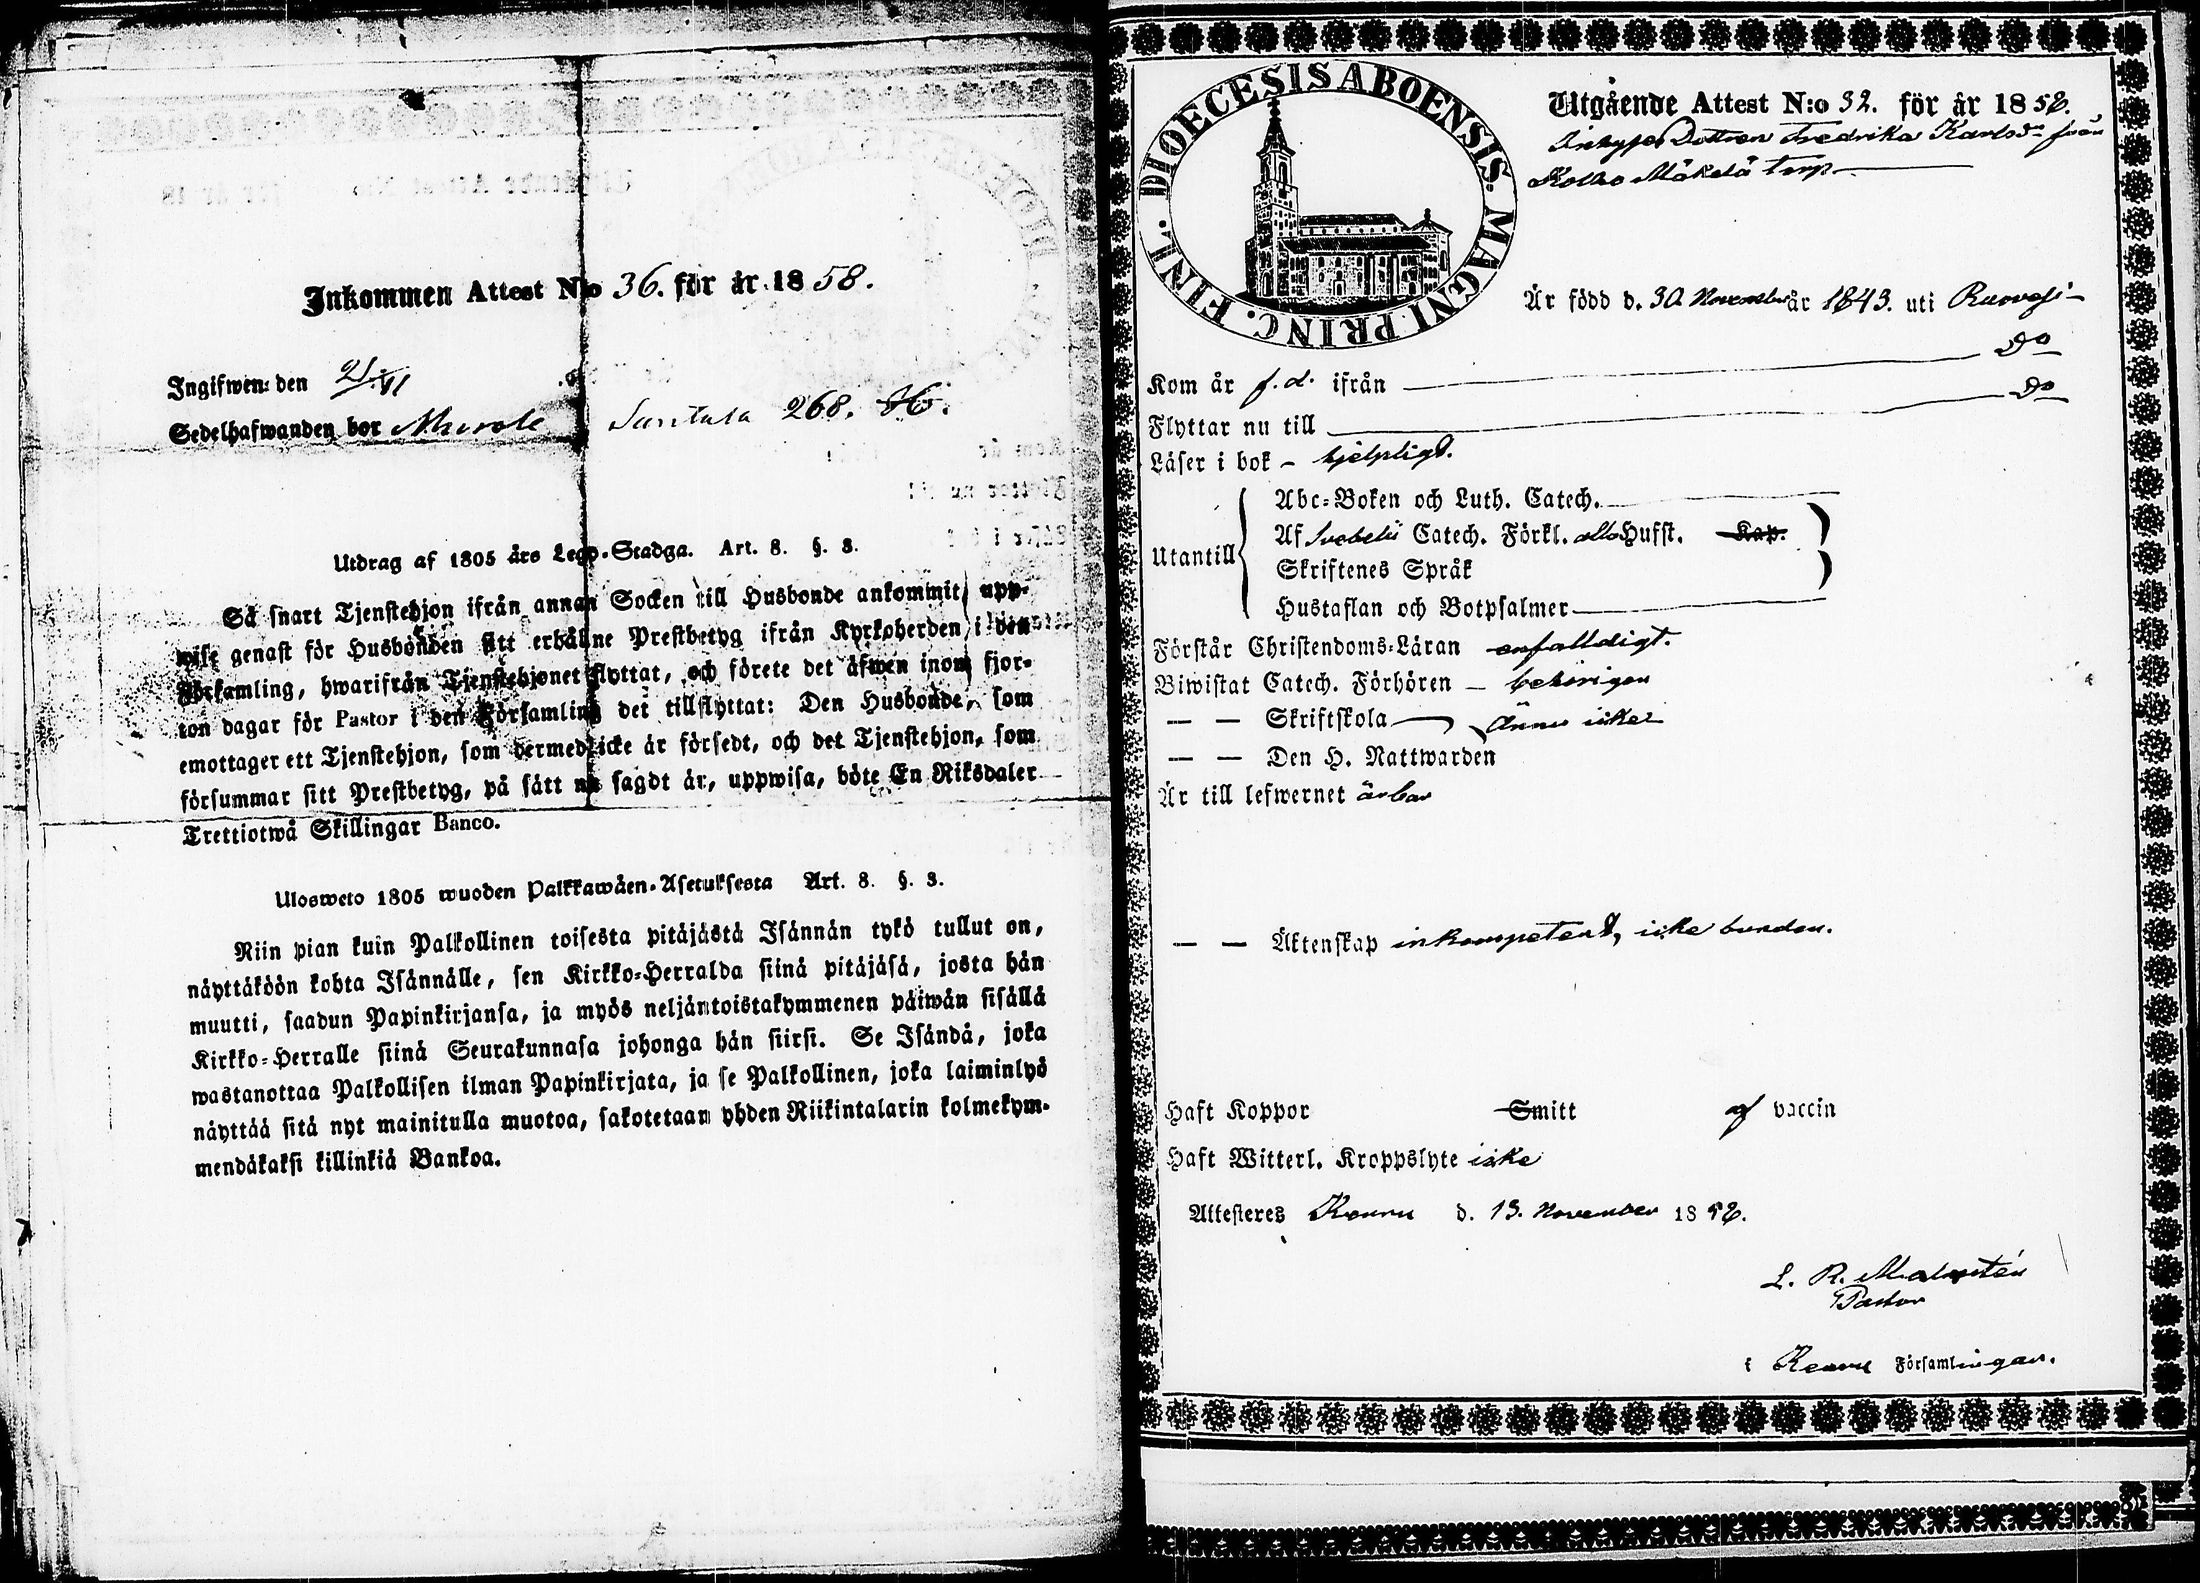 Inkommen Attest N:o 36. för år 1858.
Ingifwen den 21/11
Sedelhafwanden bor Murole Santala 268.
Utdrag af 1805 års Lego-Stadga. Art. 8. §. 3.
Så snart Tjenstehjon ifrån annan Socken till Husbonde ankommit, upp-
wise genast för Husbonden sitt erhållne Prestbetyg ifrån Kyrkoherden i den
Församling, hwarifrån Tjenstehjonet flyttat, och förete det äfwen inom fjor-
ton dagar för Pastor i den Församling det tillflyttat: Den Husbonde, som
emottager ett Tjenstehjon, som dermed icke är försedt, och det Tjenstehjon, som
försummar sitt Prestbetyg, på sätt nu sagdt är, uppwisa, böte En Riksdaler
Trettiotwå Skillingar Banco.
Ulosweto 1805 wuoden Palkkawäen-Asetuksesta Art. 8. §. 3.
Niin pian kuin Palkollinen toisesta pitäjästä Isännän tykö tullut on,
näyttäköön kohta Isännälle, sen Kirkko-Herralda siinä pitäjäsä, josta hän
muutti, saadun Papinkirjansa, ja myös neljäntoistakymmenen päiwän sisällä
Kirkko-Herralle siinä Seurakunnasa johonga hän siirsi. Se Isändä, joka
wastanottaa Palkollisen ilman Papinkirjata, ja se Palkollinen, joka laiminlyö
näyttää sitä nyt mainitulla muotoa, sakotetaan yhden Riikintalarin kolmekym-
mendäkaksi killinkiä Bankoa.
DIOECESIS ABOENSIS. MAGNI PRINC. FINL.
Utgående Attest N:o 32. för år 1858.
Inhyses Dottren Fredrika Karlsdr från
Kolho Mäkelä torp
Är född d. 30. November år 1843. uti Ruovesi
Kom år f. d. ifrån Do
Flyttar nu till Do
Läser i bok – hjelpligt.
Utantill
Abc-Boken och Luth. Catech.
Af Svebelii Catech. Förkl. alla Hufst. Kap.
Skriftenes Språk
Hustaflan och Botpsalmer
Förstår Christendoms-Läran enfalldigt.
Biwistat Catech. Förhören – behörigen
— — Skriftskola ännu icke
— — Den H. Nattwarden
Är till lefwernet ärbar
— — Äktenskap inkompetent, icke bunden.
Haft Koppor Smitt af vaccin
Haft Witterl. Kroppslyte icke
Attesteres Keuru d. 13. November 1858.
L. R. Malmstén
Pastor
i Keuru Församlingar.